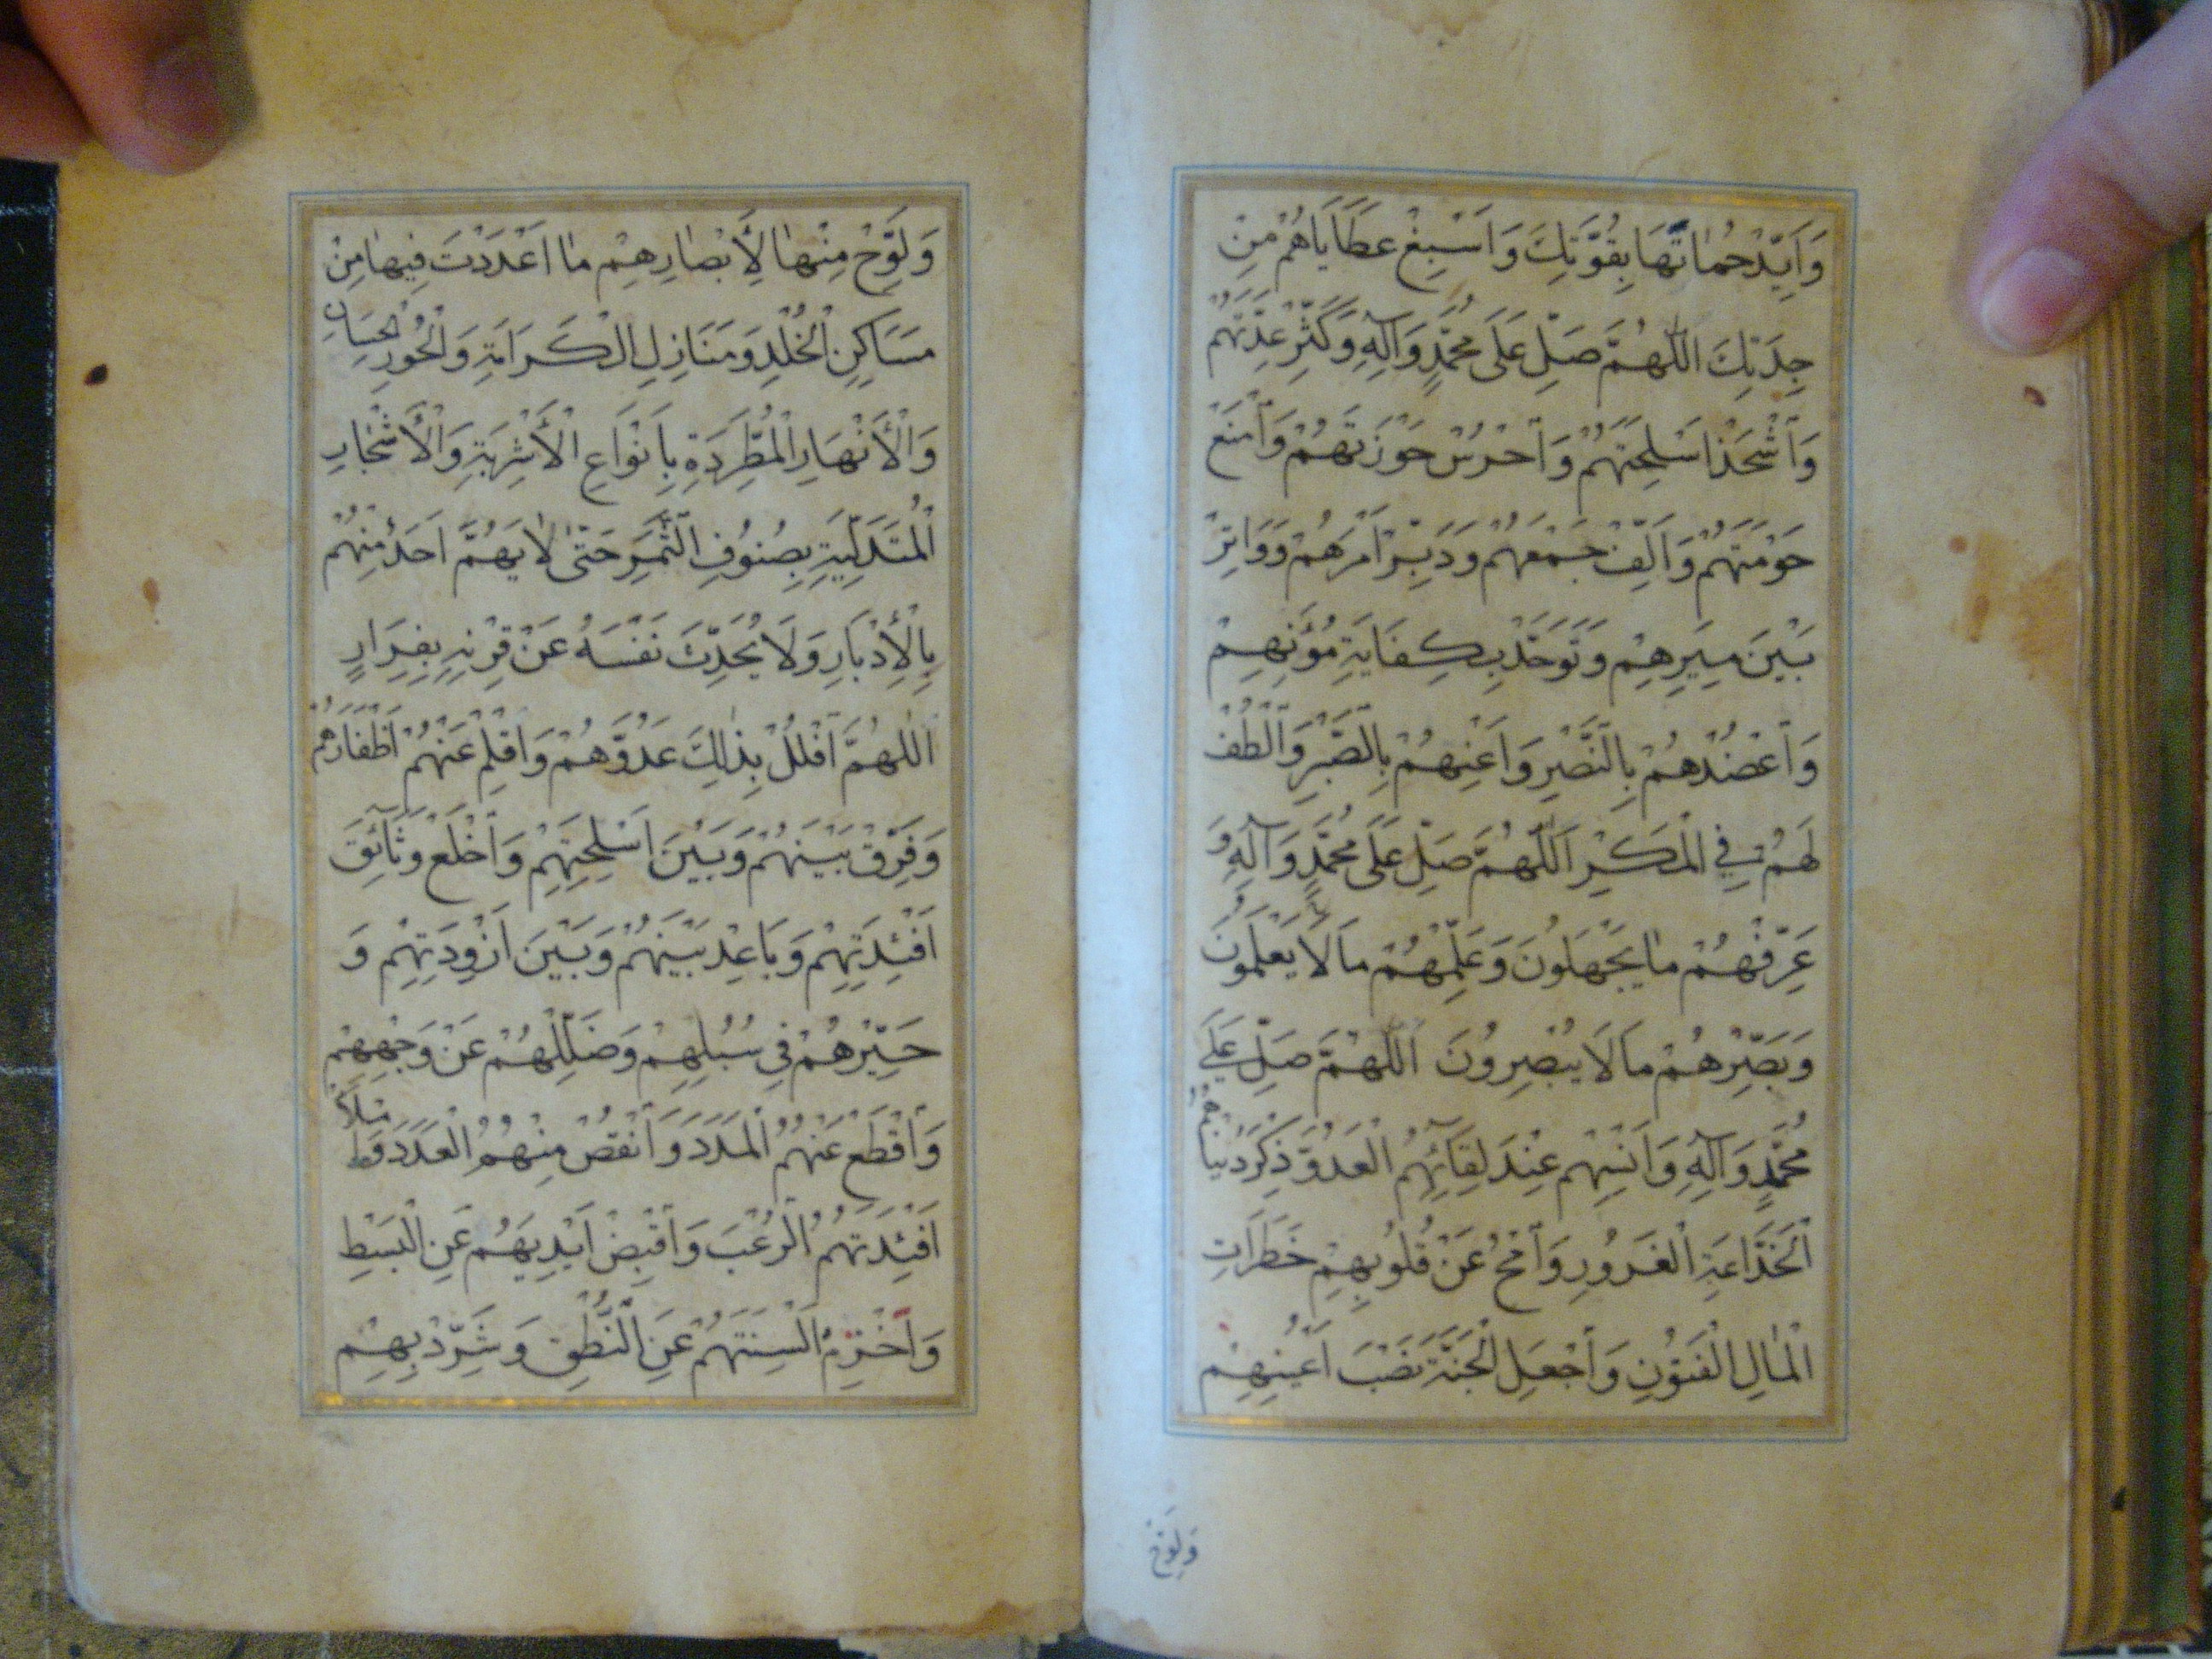 وَاَيِّدْ حُمَاتَهَا بِقُوَّتِكَ وَاَسْبِغْ عَطَايَاهُمْ مِنْ
جِدَتِكَ اَللّٰهُمَّ صَلِّ عَلَى مُحَمَّدٍ وَآلِهِ وَكَثِّرْ عِدَّتَهُمْ
وَاشْحَذْ اَسْلِحَتَهُمْ وَاحْرُسْ حَوْزَتَهُمْ وَامْنَعْ
حَوْمَتَهُمْ وَاَلِّفْ جَمْعَهُمْ وَدَبِّرْ اَمْرَهُمْ وَوَاتِرْ
بَيْنَ مِيَرِهِمْ وَتَوَحَّدْ بِكِفَايَةِ مُؤَنِهِمْ
وَاعْضُدْهُمْ بِالنَّصْرِ وَاَعِنْهُمْ بِالصَّبْرِ وَالْطُفْ
لَهُمْ فِي الْمَكْرِ اَللّٰهُمَّ صَلِّ عَلَى مُحَمَّدٍ وَآلِهِ وَ
عَرِّفْهُمْ مٰا يَجْهَلُونَ وَعَلِّمْهُمْ مَا لَا يَعْلَمُونَ
وَبَصِّرْهُمْ مَا لَا يُبْصِرُونَ اَللّٰهُمَّ صَلِّ عَلَى
مُحَمَّدٍ وَآلِهِ وَاَنْسِهِمْ عِنْدَ لِقَآئِهِمُ الْعَدُوَّ ذِكْرَ دُنْيَاهُمُ
الْخَدَّاعَةِ الْغَرُورِ وَامْحُ عَنْ قُلُوبِهِمْ خَطَرَاتِ
الْمٰالِ الْفَتُونِ وَاجْعَلِ الْجَنَّةَ نَصْبَ اَعْيُنِهِمْ
وَلَوِّحْ
وَلَوِّحْ مِنْهٰا لِأَبْصٰارِهِمْ مٰا اَعْدَدْتَ فِيهٰا مِنْ
مَسَاكِنِ الْخُلْدِ وَمَنَازِلِ الْكَرَامَةِ وَالْحُورِ الْحِسَانِ
وَالْأَنْهَارِ الْمُطَّرِدَةِ بِاَنْوَاعِ الْأَشْرِبَةِ وَالْأَشْجٰارِ
الْمُتَدَلِّيَةِ بِصُنُوفِ الثَّمَرِ حَتّٰى لٰا يَهُمَّ اَحَدٌ مِنْهُمْ
بِالْأِدْبَارِ وَلَا يُحَدِّثَ نَفْسَهُ عَنْ قِرْنِهِ بِفِرَارٍ
اَللّٰهُمَّ افْلُلْ بِذٰلِكَ عَدُوَّهُمْ وَاقْلِمْ عَنْهُمْ اَظْفَارَهُمْ
وَفَرِّقْ بَيْنَهُمْ وَبَيْنَ اَسْلِحَتِهِمْ وَاخْلَعْ وَثَآئِقَ
اَفْئِدَتِهِمْ وَبَاعِدْ بَيْنَهُمْ وَبَيْنَ اَزْوِدَتِهِمْ وَ
حَيِّرْهُمْ فِي سُبُلِهِمْ وَضَلِّلْهُمْ عَنْ وَجْهِهِمْ
وَاقْطَعْ عَنْهُمُ الْمَدَدَ وَانْقُصْ مِنْهُمُ الْعَدَدَ وَامْلَأْ
اَفْئِدَتَهُمُ الرُّعْبَ وَاقْبِضْ اَيْدِيَهُمْ عَنِ الْبَسْطِ
وَاخْزِمْ اَلْسِنَتَهُمْ عَنِ النُّطْقِ وَشَرِّدْ بِهِمْ